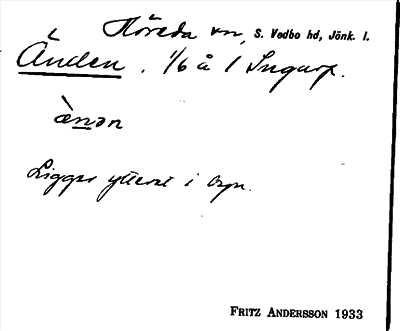 Höreda sn, S. Vedbo hd, Jönk. l.
Änden. 1/6 å 1 Ingarp.
ǟnən
Ligger ytterst i byn.
FRITZ ANDERSSON 1933